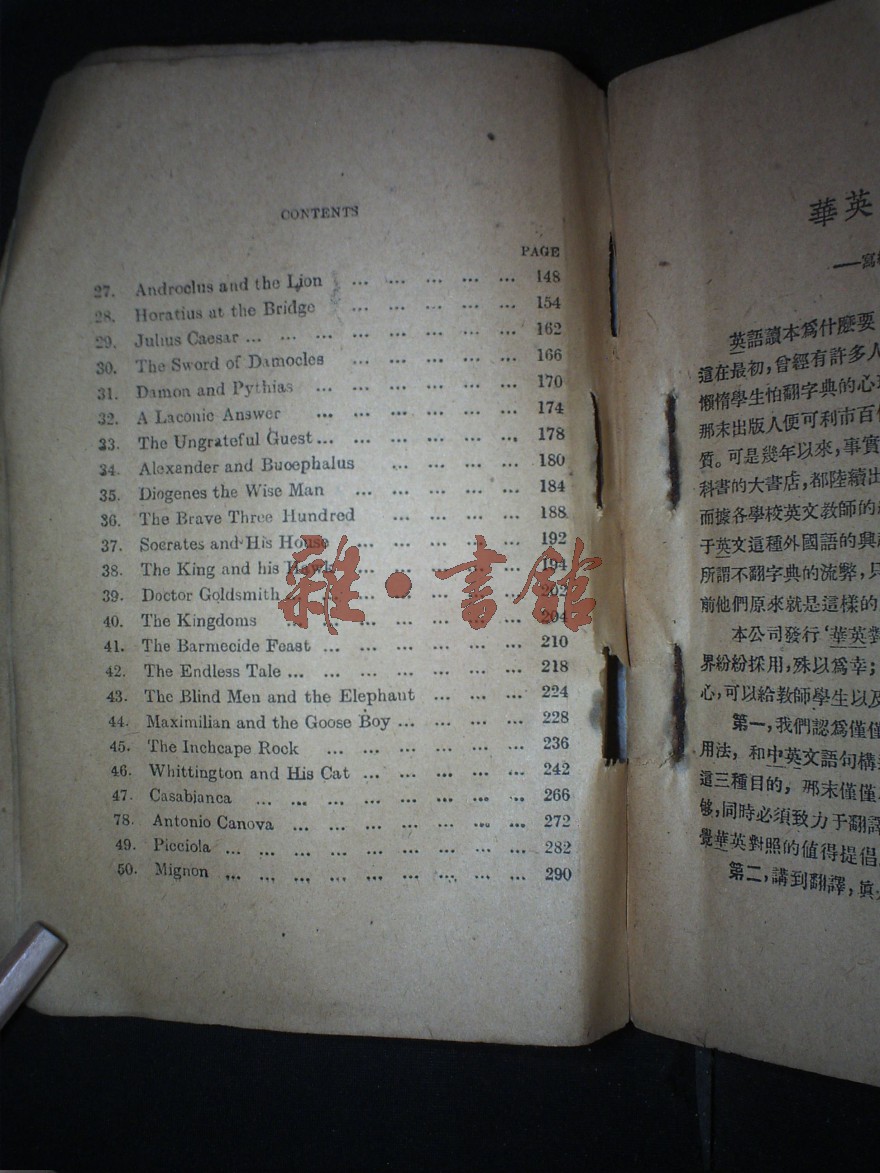 CONTENTS
PAGE
27. Androclus and the Lion ... ... ... ... ... 148
28. Horatius at the Bridge ... ... ... ... ... 154
29. Julius Caesar ... ... ... ... ... ... ... 162
30. The Sword of Damocles ... ... ... ... ... 166
31. Damon and Pythias ... ... ... ... ... ... 170
32. A Laconic Answer ... ... ... ... ... ... 174
33. The Ungrateful Guest ... ... ... ... ... ... 178
34. Alexander and Bucephalus ... ... ... ... 180
35. Diogenes the Wise Man ... ... ... ... ... 184
36. The Brave Three Hundred ... ... ... ... 188
37. Socrates and His House ... ... ... ... ... 192
38. The King and his Hawk ... ... ... ... ... 194
39. Doctor Goldsmith ... ... ... ... ... ... ... 202
40. The Kingdoms ... ... ... ... ... ... ... 204
41. The Barmecide Feast ... ... ... ... ... ... 210
42. The Endless Tale ... ... ... ... ... ... ... 218
43. The Blind Men and the Elephant ... ... ... 224
44. Maximilian and the Goose Boy ... ... ... ... 228
45. The Inchcape Rock ... ... ... ... ... ... 236
46. Whittington and His Cat ... ... ... ... ... 242
47. Casabianca ... ... ... ... ... ... ... ... 266
78. Antonio Canova ... ... ... ... ... ... ... 272
49. Picciola ... ... ... ... ... ... ... ... ... 282
50. Mignon ... ... ... ... ... ... ... ... ... 290
雜·書館
華英
英語讀本爲什麽要
這在最初,曾經有許多人
懶惰學生怕翻字典的心
那末出版人便可利市百
質。可是幾年以來,事實
科書的大書店,都陸續出
而據各學校英文教師的
于英文這種外國語的興
所謂不翻字典的流弊,只
前他們原來就是這樣的
本公司發行‘華英
界紛紛採用,殊以爲幸;
心,可以給敎師學生以及
第一,我們認爲僅僅
用法,和中英文語句構
這三種目的,那末僅僅
够,同時必須致力于翻譯
覺華英對照的值得提倡
第二,講到翻譯,眞